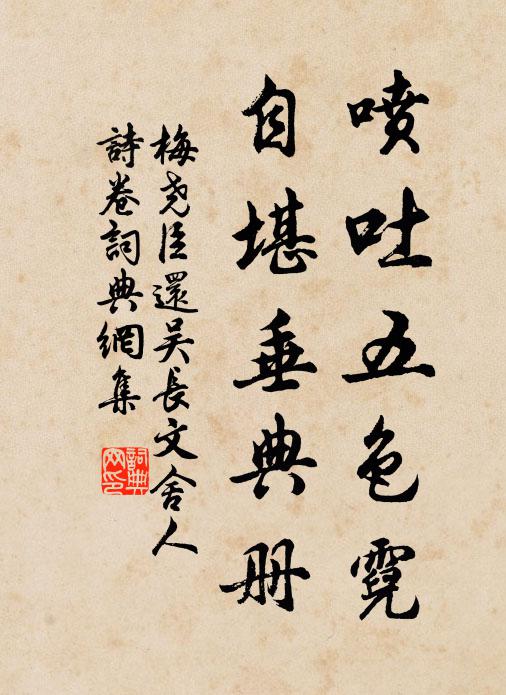 噴吐五色霓
自堪垂典冊
梅堯臣還吳長文舍人
詩卷詞典網集
詞典
网印